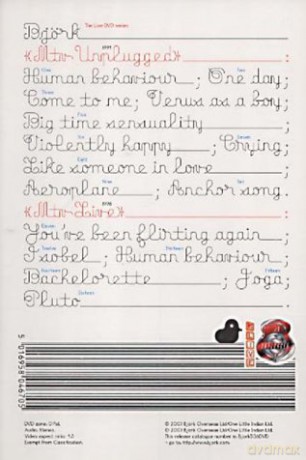 Björk The Live DVD series
1994
«Mtv Unplugged» :
One Two
Human behaviour ; One day ;
Three Four
Come to me ; Venus as a boy ;
Five
Big time sensuality ;
Six Seven
Violently happy ; Crying ;
Eight
Like someone in love ;
Nine Ten
Aeroplane ; Anchor song.
1998
«Mtv Live» :
Eleven
You've been flirting again ;
Twelve Thirteen
Isobel ; Human behaviour ;
Fourteen Fifteen
Bachelorette ; Joga ;
Sixteen
Pluto
5 016958 046705
DVD
Audio: Stereo.
Exempt from Classification.
© 2003 Björk Overseas Ltd/One Little Indian Ltd.
℗ 2003 Björk Overseas Ltd/One Little Indian Ltd.
dvdmax